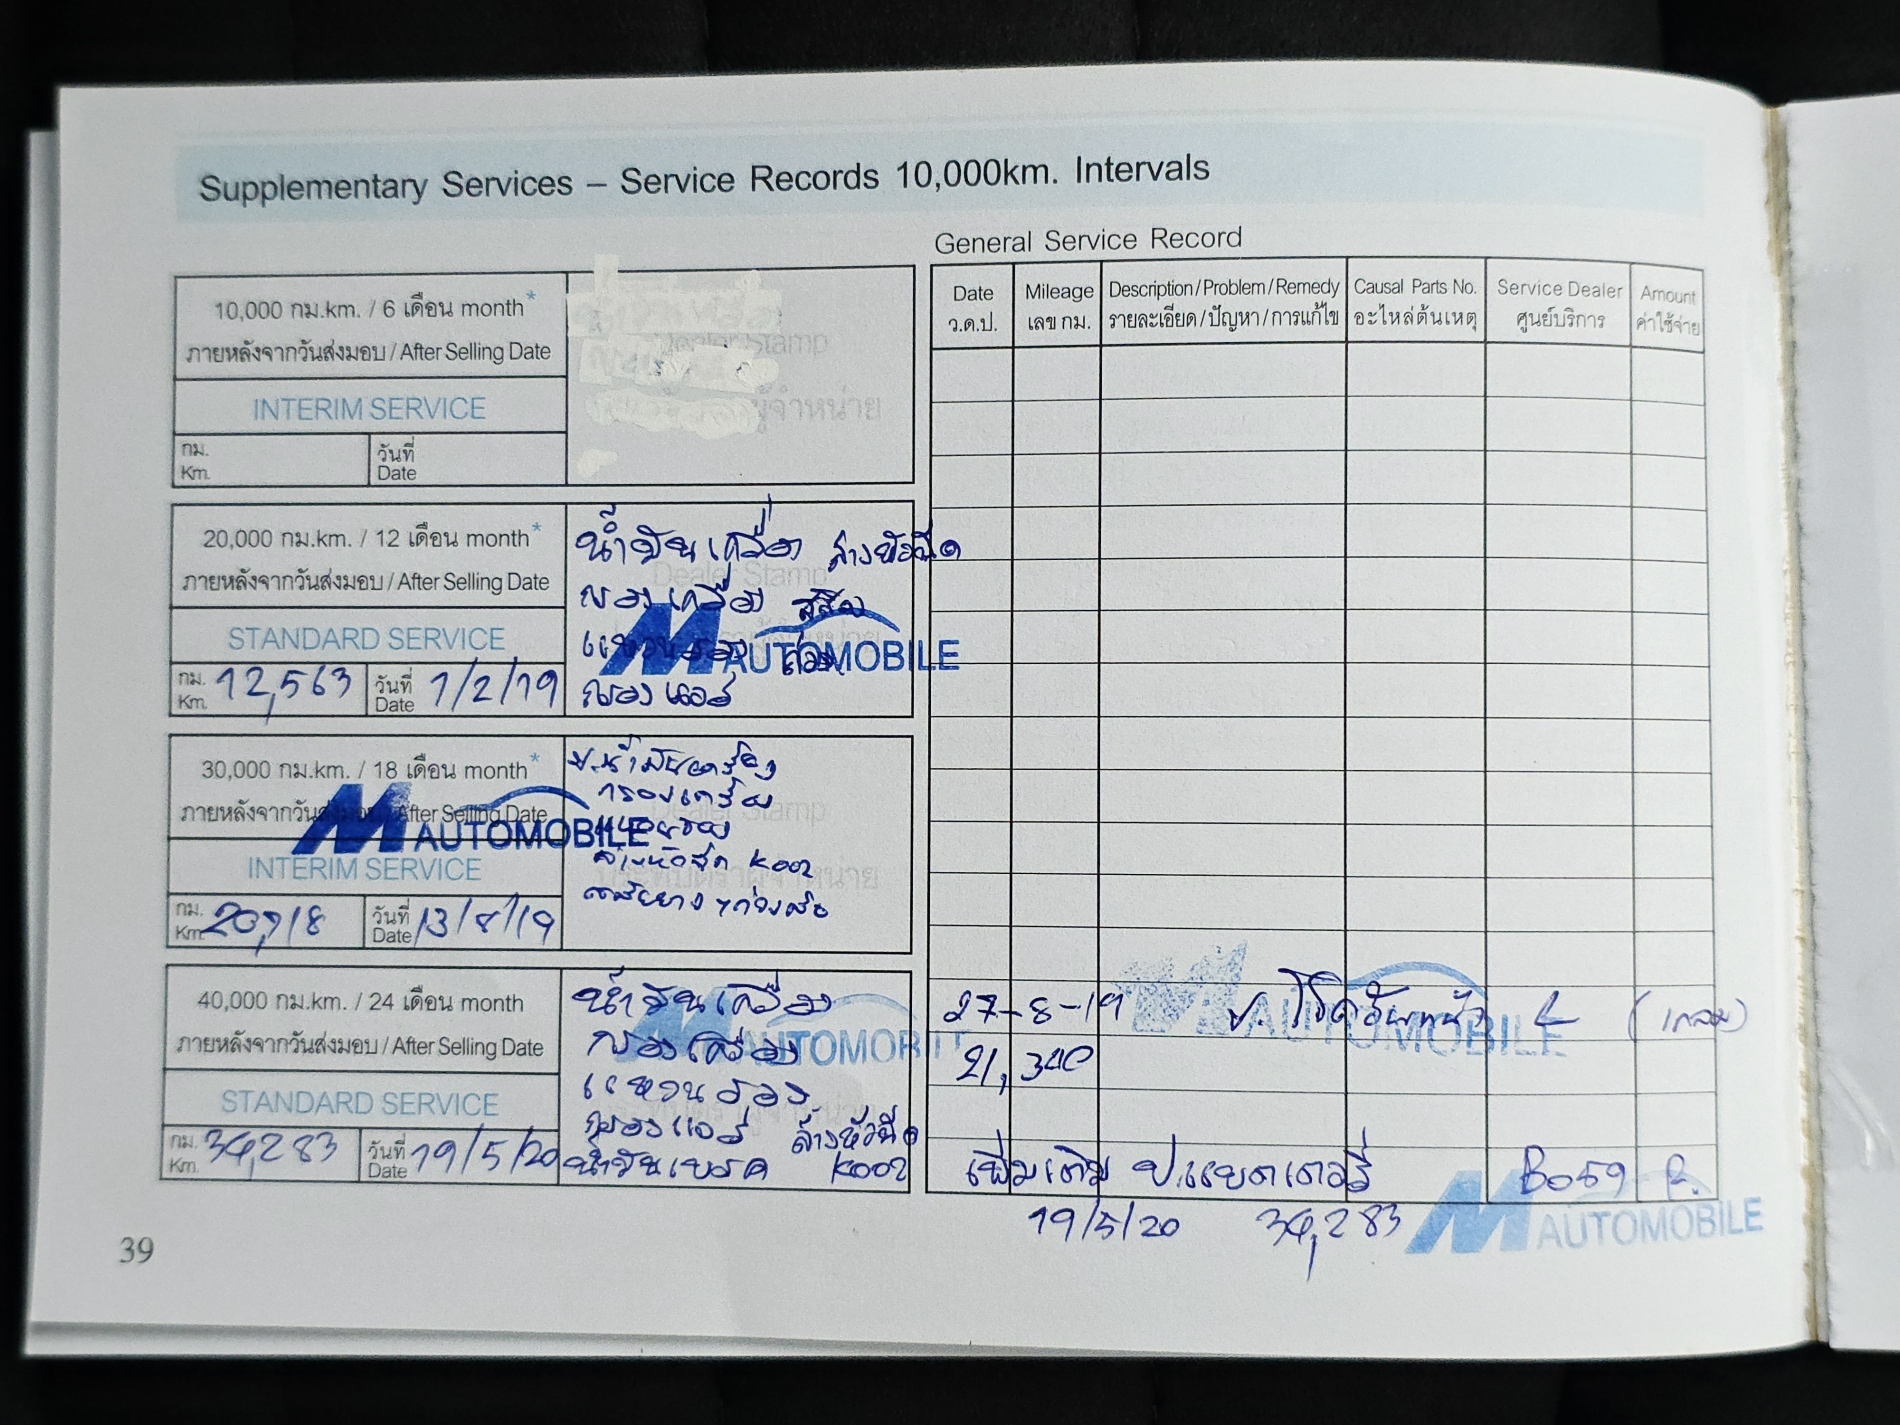 Supplementary Services – Service Records 10,000km. Intervals
10,000 กม.km. / 6 เดือน month*
ภายหลังจากวันส่งมอบ / After Selling Date
INTERIM SERVICE
กม.
Km.
วันที่
Date
Dealer Stamp
ผู้จำหน่าย
20,000 กม.km. / 12 เดือน month*
ภายหลังจากวันส่งมอบ / After Selling Date
STANDARD SERVICE
กม.
Km. 12,563
วันที่
Date 1/2/19
Dealer Stamp
น้ำมันเครื่อง ล้างหัวฉีด
กรองเครื่อง
แหวนรอง
กรองแอร์
M AUTOMOBILE
30,000 กม.km. / 18 เดือน month*
ภายหลังจากวันส่งมอบ / After Selling Date
INTERIM SERVICE
กม.
Km. 20,918
วันที่
Date 13/8/19
Dealer Stamp
ป.น้ำมันเครื่อง
กรองเครื่อง
แหวนรอง
ล้างหัวฉีด K002
M AUTOMOBILE
40,000 กม.km. / 24 เดือน month
ภายหลังจากวันส่งมอบ / After Selling Date
STANDARD SERVICE
กม.
Km. 34,283
วันที่
Date 19/5/20
น้ำมันเครื่อง
กรองเครื่อง
แหวนรอง
กรองแอร์ ล้างหัวฉีด
น้ำมันเบรค K002
M AUTOMOBILE
General Service Record
Date
ว.ด.ป.
Mileage
เลข กม.
Description / Problem / Remedy
รายละเอียด / ปัญหา / การแก้ไข
Causal Parts No.
อะไหล่ต้นเหตุ
Service Dealer
ศูนย์บริการ
Amount
ค่าใช้จ่าย
27-8-19 ป. โช๊คอัพหน้า L
M AUTOMOBILE
21,340
เพิ่มเติม ป.แบตเตอรี่ B059 R.
19/5/20 34,283
M AUTOMOBILE
39